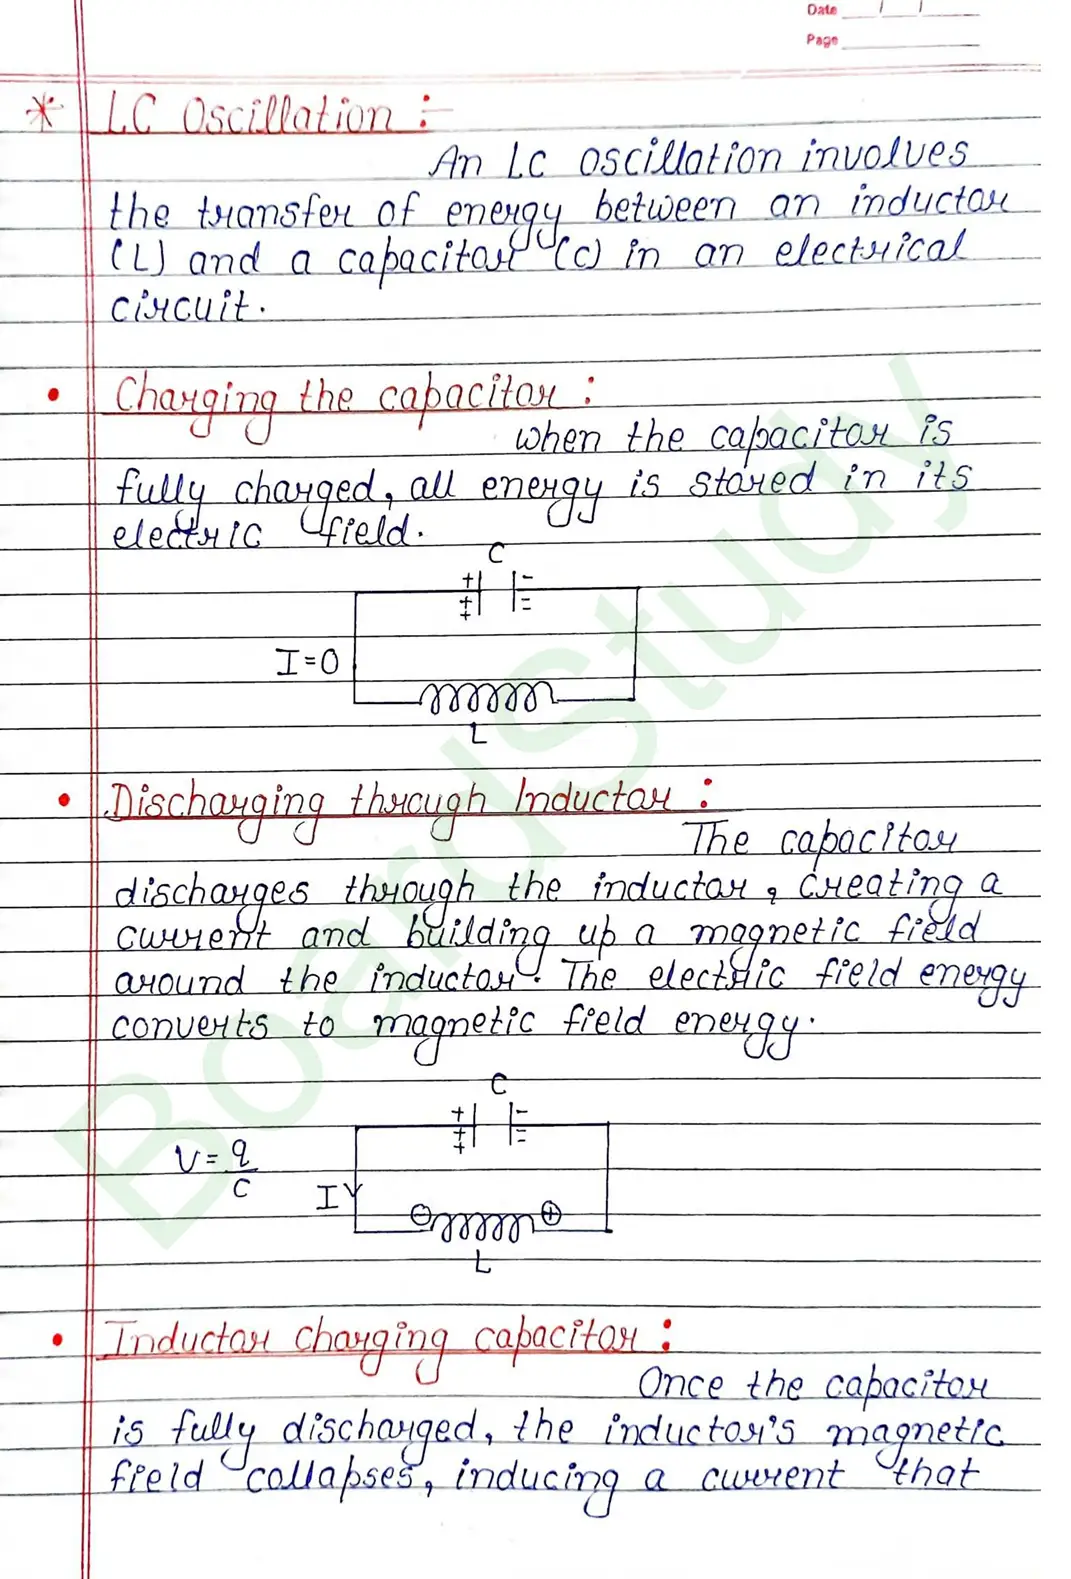 Date / /
Page
* LC Oscillation :-
An LC oscillation involves
the transfer of energy between an inductor
(L) and a capacitor (c) in an electrical
circuit.
• Charging the capacitor :
when the capacitor is
fully charged, all energy is stored in its
electric field.
C
+ -
+ -
+ -
I=0
L
• Discharging through Inductor :
The capacitor
discharges through the inductor, creating a
current and building up a magnetic field
around the inductor. The electric field energy
converts to magnetic field energy.
C
+ -
+ -
+ -
V = q
C
I
⊖ ⊕
L
• Inductor charging capacitor :
Once the capacitor
is fully discharged, the inductor's magnetic
field collapses, inducing a current that
BoardStudy